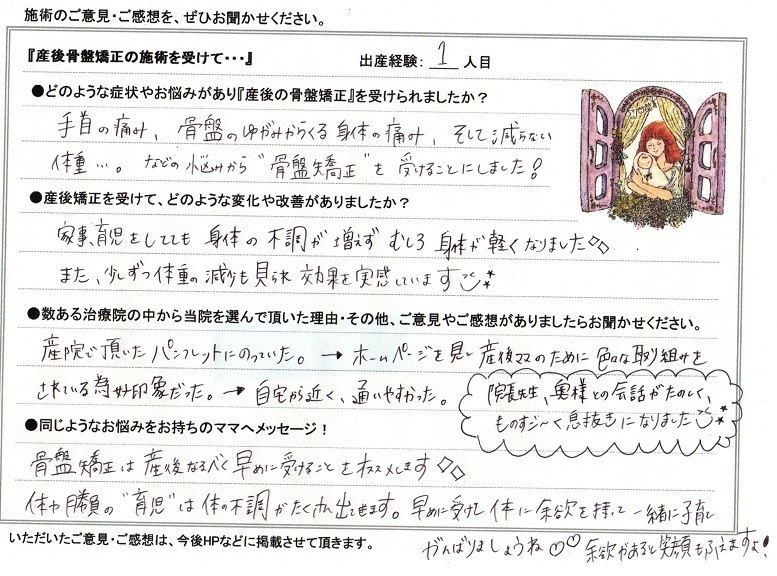 施術のご意見・ご感想を、ぜひお聞かせください。
『産後骨盤矯正の施術を受けて・・・』 出産経験: 1 人目
●どのような症状やお悩みがあり『産後の骨盤矯正』を受けられましたか？
手首の痛み、骨盤のゆがみからくる身体の痛み、そして減らない
体重…。などの悩みから"骨盤矯正"を受けることにしました！
●産後矯正を受けて、どのような変化や改善がありましたか？
家事、育児をしてても身体の不調が増えずむしろ身体が軽くなりました◇◇
また、少しずつ体重の減少も見られ効果を実感しています
●数ある治療院の中から当院を選んで頂いた理由・その他、ご意見やご感想がありましたらお聞かせください。
産院で頂いたパンフレットにのっていた。→ホームページを見て産後ママのために色々な取り組みを
されている為好印象だった。→自宅から近く、通いやすかった。
院長先生、奥様との会話がたのしく、
ものすご〜く息抜きになりました
●同じようなお悩みをお持ちのママへメッセージ！
骨盤矯正は産後なるべく早めに受けることをオススメします◇◇
体力勝負の"育児"は体の不調がたくさん出てきます。早めに受けて体に余欲を持って一緒に子育て
がんばりましょうね♡♡余欲があると笑顔もふえますよ！
いただいたご意見・ご感想は、今後HPなどに掲載させて頂きます。